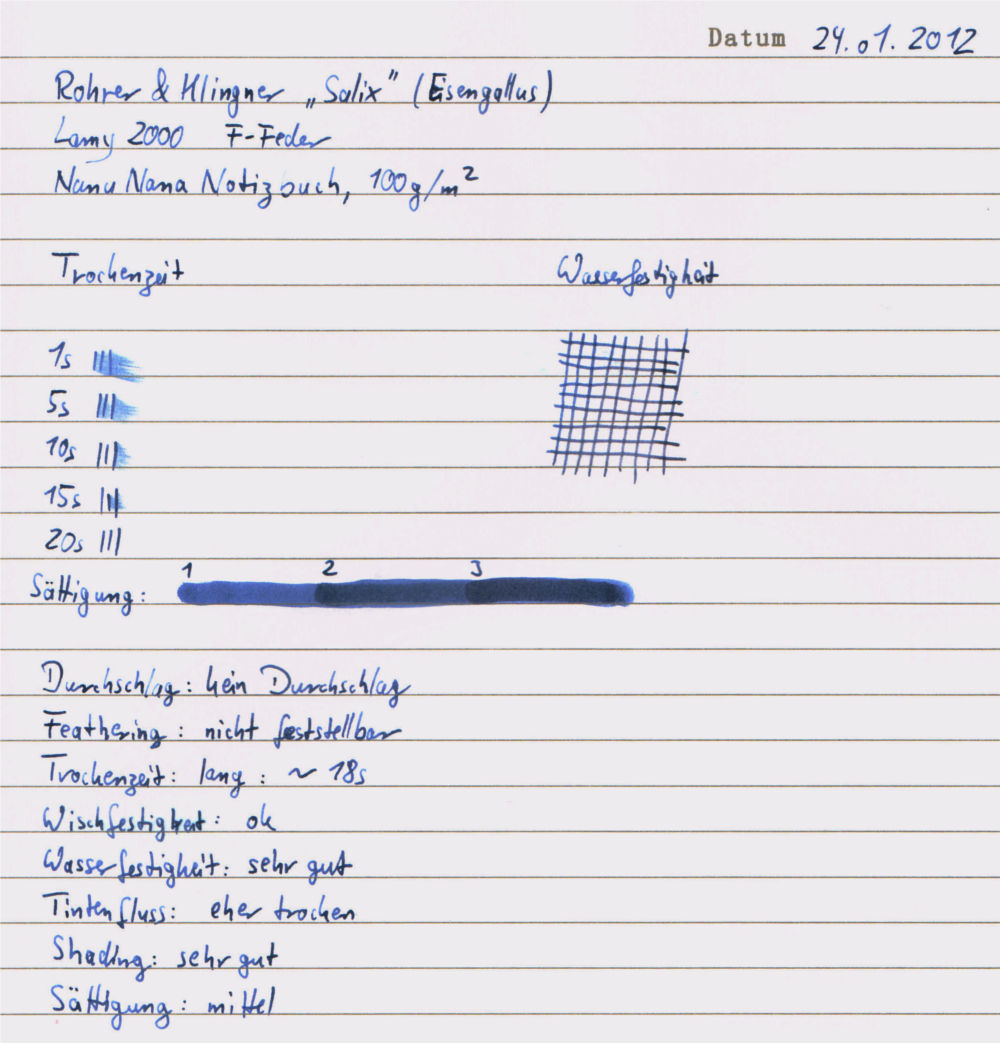 Datum 24.01.2012
Rohrer & Klingner „Salix" (Eisengallus)
Lamy 2000 F-Feder
Nanu Nana Notizbuch, 100g/m²
Trochenzeit Wasserfestigkeit
1s
5s
10s
15s
20s
1 2 3
Sättigung:
Durchschlag: kein Durchschlag
Feathering: nicht feststellbar
Trockenzeit: lang: ~ 18s
Wischfestigkeit: ok
Wasserfestigkeit: sehr gut
Tintenfluss: eher trocken
Shading: sehr gut
Sättigung: mittel